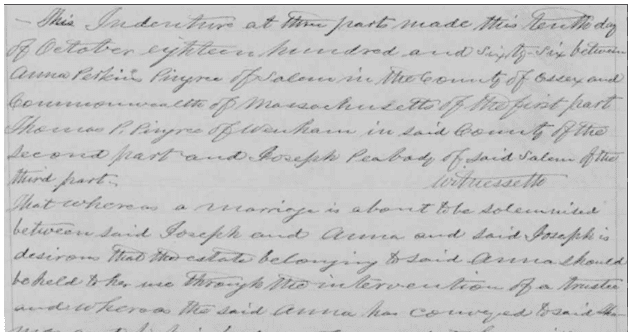 This Indenture at three parts made this tenth day
of October eighteen hundred and Sixty Six between
Anna Perkins Pingree of Salem in the County of Essex and
Commonwealth of Massachusetts of the first part
Thomas P. Pingree of Wenham in said County of the
second part and Joseph Peabody of said Salem of the
third part. Witnesseth
That whereas a marriage is about to be solemnised
between said Joseph and Anna and said Joseph is
desirous that the estate belonging to said Anna should
be held to her use through the intervention of a trustee
and whereas the said Anna has conveyed to said Tho